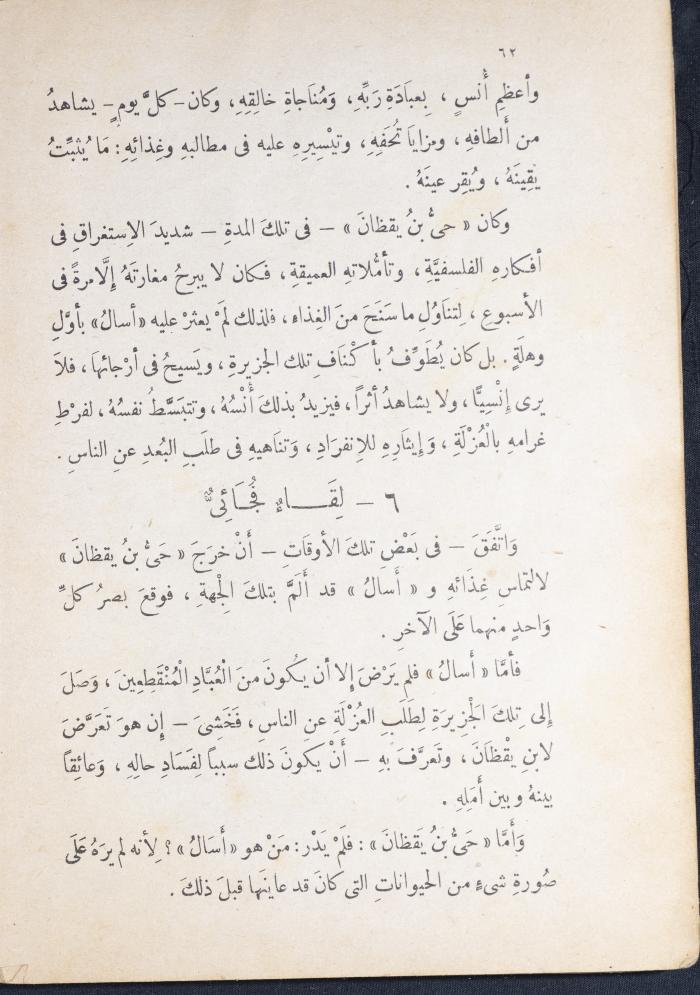 ٦٢
وأعظمِ أُنسٍ ، بِعبَادَةِ رَبِّهِ، وَمُنَاجاةِ خالِقِهِ، وكان - كلَّ يومٍ - يشاهدُ
من أَلطافهِ ، ومزايَا تُحَفِهِ، وتيْسِيرِهِ عليه فى مطالبهِ وغِذائِهِ: مَا يُثبِّتُ
يَقِينَهُ ، ويُقِر عينَهُ .
وكان « حىُّ بنُ يقظانَ » - فى تلكَ المدةِ - شديدَ الاِستغراقِ فى
أفكارهِ الفلسفيَّةِ ، وتأمُّلاتهِ العميقةِ ، فكان لا يبرحُ مغارتَهُ إلَّا مرةً فى
الأسبوعِ ، لِتناوُلِ ما سَنَحَ منَ الغِذاءِ، فلذلك لمْ يعثرْ عليه «أسالُ» بأوَّلِ
وهلَةٍ . بل كان يُطَوِّفُ بأكْنافِ تلك الجزيرةِ ، ويَسيحُ فى أرْجائهَا ، فلاَ
يرى إنْسِيًّا ، ولا يشاهدُ أثراً ، فيزيدُ بذلكَ أُنْسُهُ ، وتتبَسَّطُ نفسُهُ ، لفرْطِ
غرامهِ بالْعُزْلَةِ ، وَإيثارِهِ للاِنفرَادِ ، وَتناهيهِ فى طلَبِ البُعدِ عنِ الناسِ .
٦ - لِقَـاءٌ فُجَائِىٌّ
وَاتَّفَقَ - فى بَعْضِ تلكَ الأوقَاتِ - أَنْ خرَجَ « حَىُّ بنُ يقظانَ »
لالتماسِ غِذَائهِ و « أَسالُ » قد أَلَمَّ بتلكَ الْجهةِ ، فوقعَ بصرُ كلِّ
وَاحدٍ منهما عَلَى الآخرِ .
فأمَّا « أَسالُ » فلم يَرْضَ إلا أن يكُونَ منَ الْعُبَّادِ الْمُنْقَطِعِينَ ، وَصَلَ
إلى تِلكَ الْجَزِيرَةِ لِطَلَبِ العُزْلَةِ عنِ الناسِ ، فَخَشِىَ - إن هوَ تَعَرَّضَ
لابنِ يقْظَانَ ، وتَعرَّفَ بهِ - أَنْ يكونَ ذلك سبباً لِفَسَادِ حالِهِ ، وَعائِقاً
بينهُ وبين أَمَلِهِ .
وَأَمَّا « حَىُّ بنُ يَقظانَ » : فلَمْ يَدْر: مَنْ هو «أَسَالُ» ؟ لِأَنه لم يرَهُ عَلَى
صُورةِ شىءٍ من الحيواناتِ التى كانَ قد عاينَها قبلَ ذلكَ .